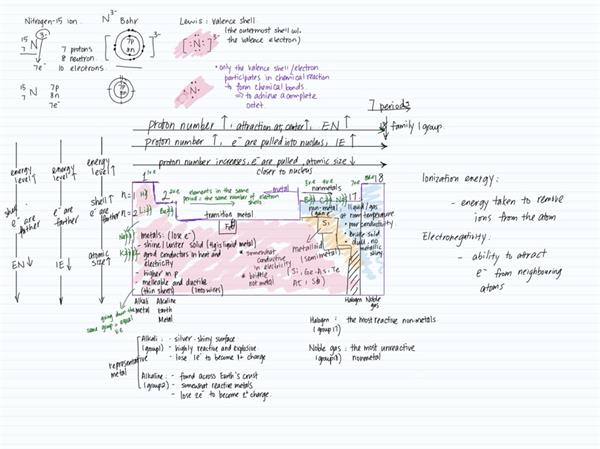 Nitrogen-15 ion
N 3-
Bohr
15 N 3-
7
7e-
7 protons
8 neutron
10 electrons
7p
8n
3-
15 N
7
7p
8n
7e-
Lewis: valence shell
(the outermost shell w/
the valence electron)
[N] 3-
N
• only the valence shell/electron
participates in chemical reaction
→ form chemical bonds
⇒ to achieve a complete
octet
7 periods
family/group
proton number ↑, attraction at center ↑, EN ↑
proton number ↑, e- are pulled into nucleus, IE ↑
proton number increases, e- are pulled, atomic size ↓
closer to nucleus
energy level ↑
energy level ↑
energy level ↑
shell ↑
e- are farther
e- are farther
shell ↑
e- are farther
EN ↓
IE ↓
atomic size ↑
1
18
n=1
H
n=2
Li
Be
2
elements in the same
period = the same number of electron
shells
metal
nonmetals
17
transition metal
metals: (lose e-)
- shine/luster solid
- good conductors in heat and
electricity
- higher in p
- malleable and ductile
(thin sheets) (into wires)
non-metal
(gain e-)
- liquid/gas
at room temperature
- poor conductivity
- dull, no
metallic
shiny
Si
metalloid
(semimetal)
• somewhat
conductive
in electricity
• brittle
not metal
(Si, Ge, As, Te
At, Sb)
Alkali
metal
Alkaline
Earth
Metal
Halogen
Noble
gas
going down the
same group = equal
v.e
representative
metal
Alkali: - silver-shiny surface
(group 1) - highly reactive and explosive
- lose 1e- to become 1+ charge
Alkaline: - found across Earth's crust
(group 2) - somewhat reactive metals
- lose 2e- to become 2+ charge.
Halogen: the most reactive non-metals
(group 17)
Noble gas: the most unreactive
(group 18) nonmetal
Ionization energy:
- energy taken to remove
ions from the atom
Electronegativity:
- ability to attract
e- from neighbouring
atoms